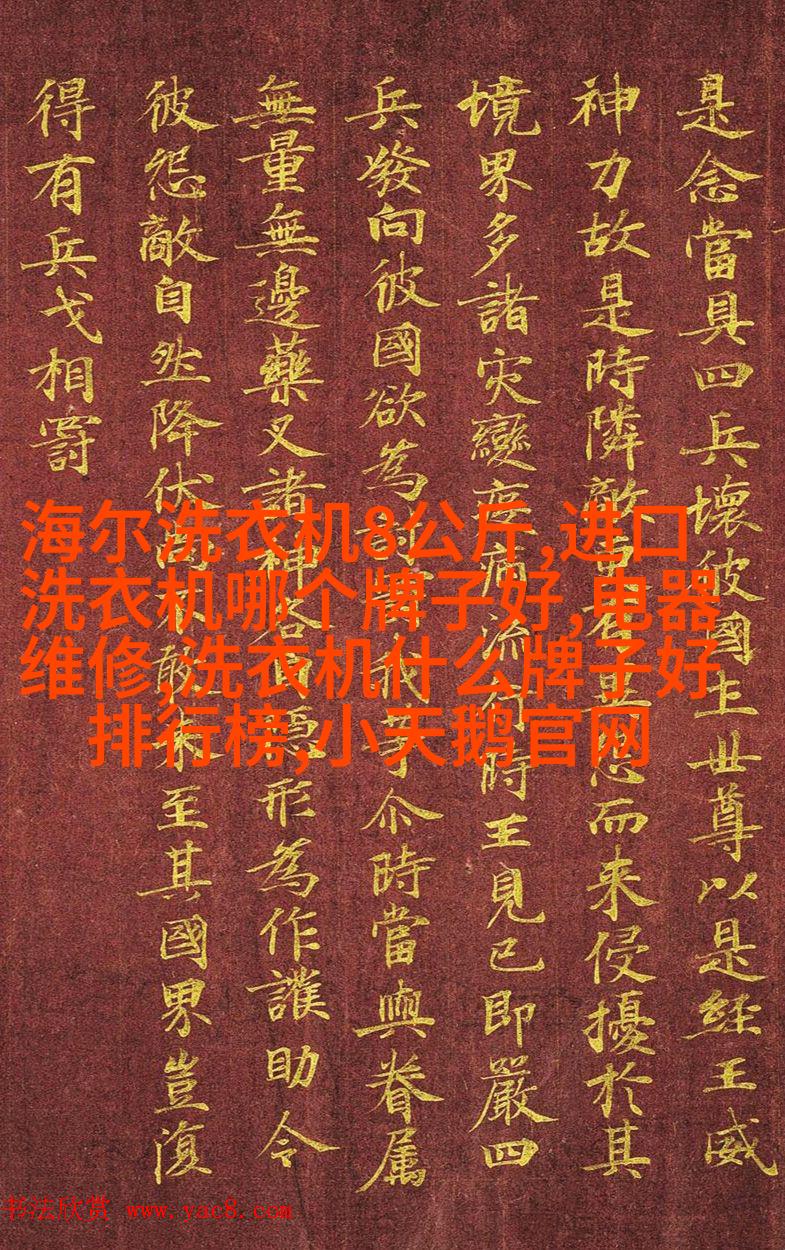 是念當具四兵壞彼國土世尊以是經王威
神力故是時隣敵更有異怨而来侵擾於其
境界多諸灾變疫病流行時王見已即嚴四
兵發向彼國欲為討我等尒時當與眷属
無量無邊藥叉諸神各自隱形為作護助令
彼怨敵自然降伏尚不敢来至其國界豈復
得有兵戈相罸
海尔洗衣机8公斤,进口
洗衣机哪个牌子好,电器
维修,洗衣机什么牌子好
排行榜,小天鹅官网
书法欣赏 www.yac8.com